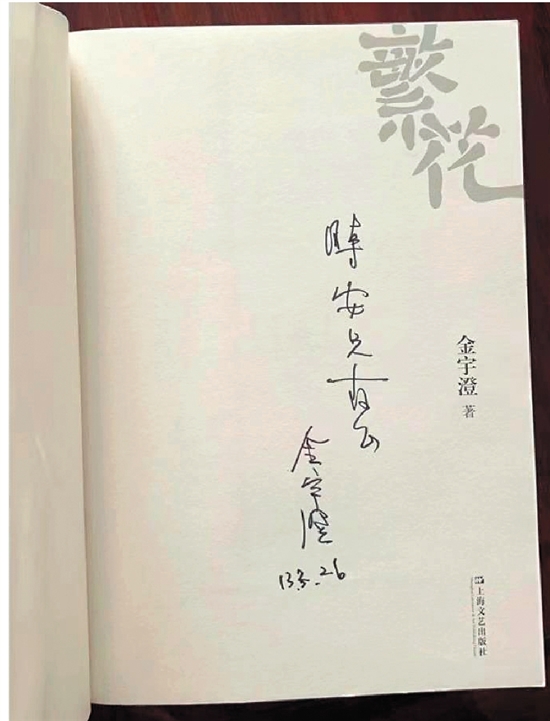 繁花
金宇澄 著
安兄
金宇澄
13.3.26
上海文艺出版社